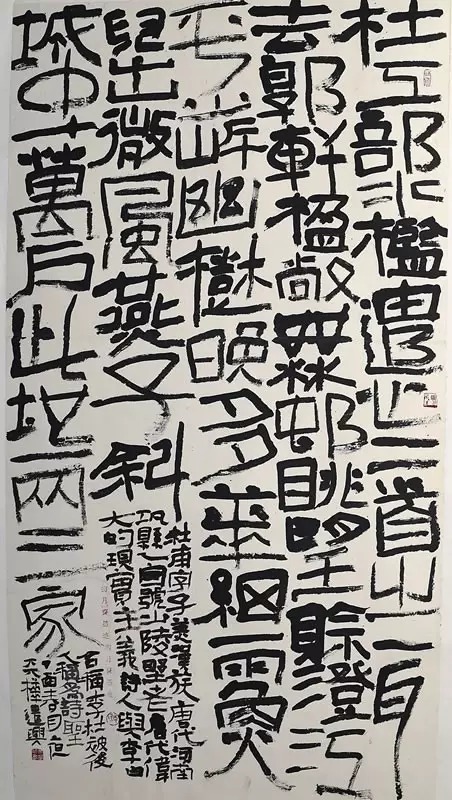 杜工部水檻遣心二首之一
去郭軒楹敞無邨眺望賒澄江
平少岸幽樹晚多華細雨魚
兒出微風燕子斜
城中十萬戶此地兩三家
杜甫字子美漢族唐代河南
巩縣自號少陵野老唐代偉
大的現實主義詩人與李白
合稱李杜被後
人稱為詩聖